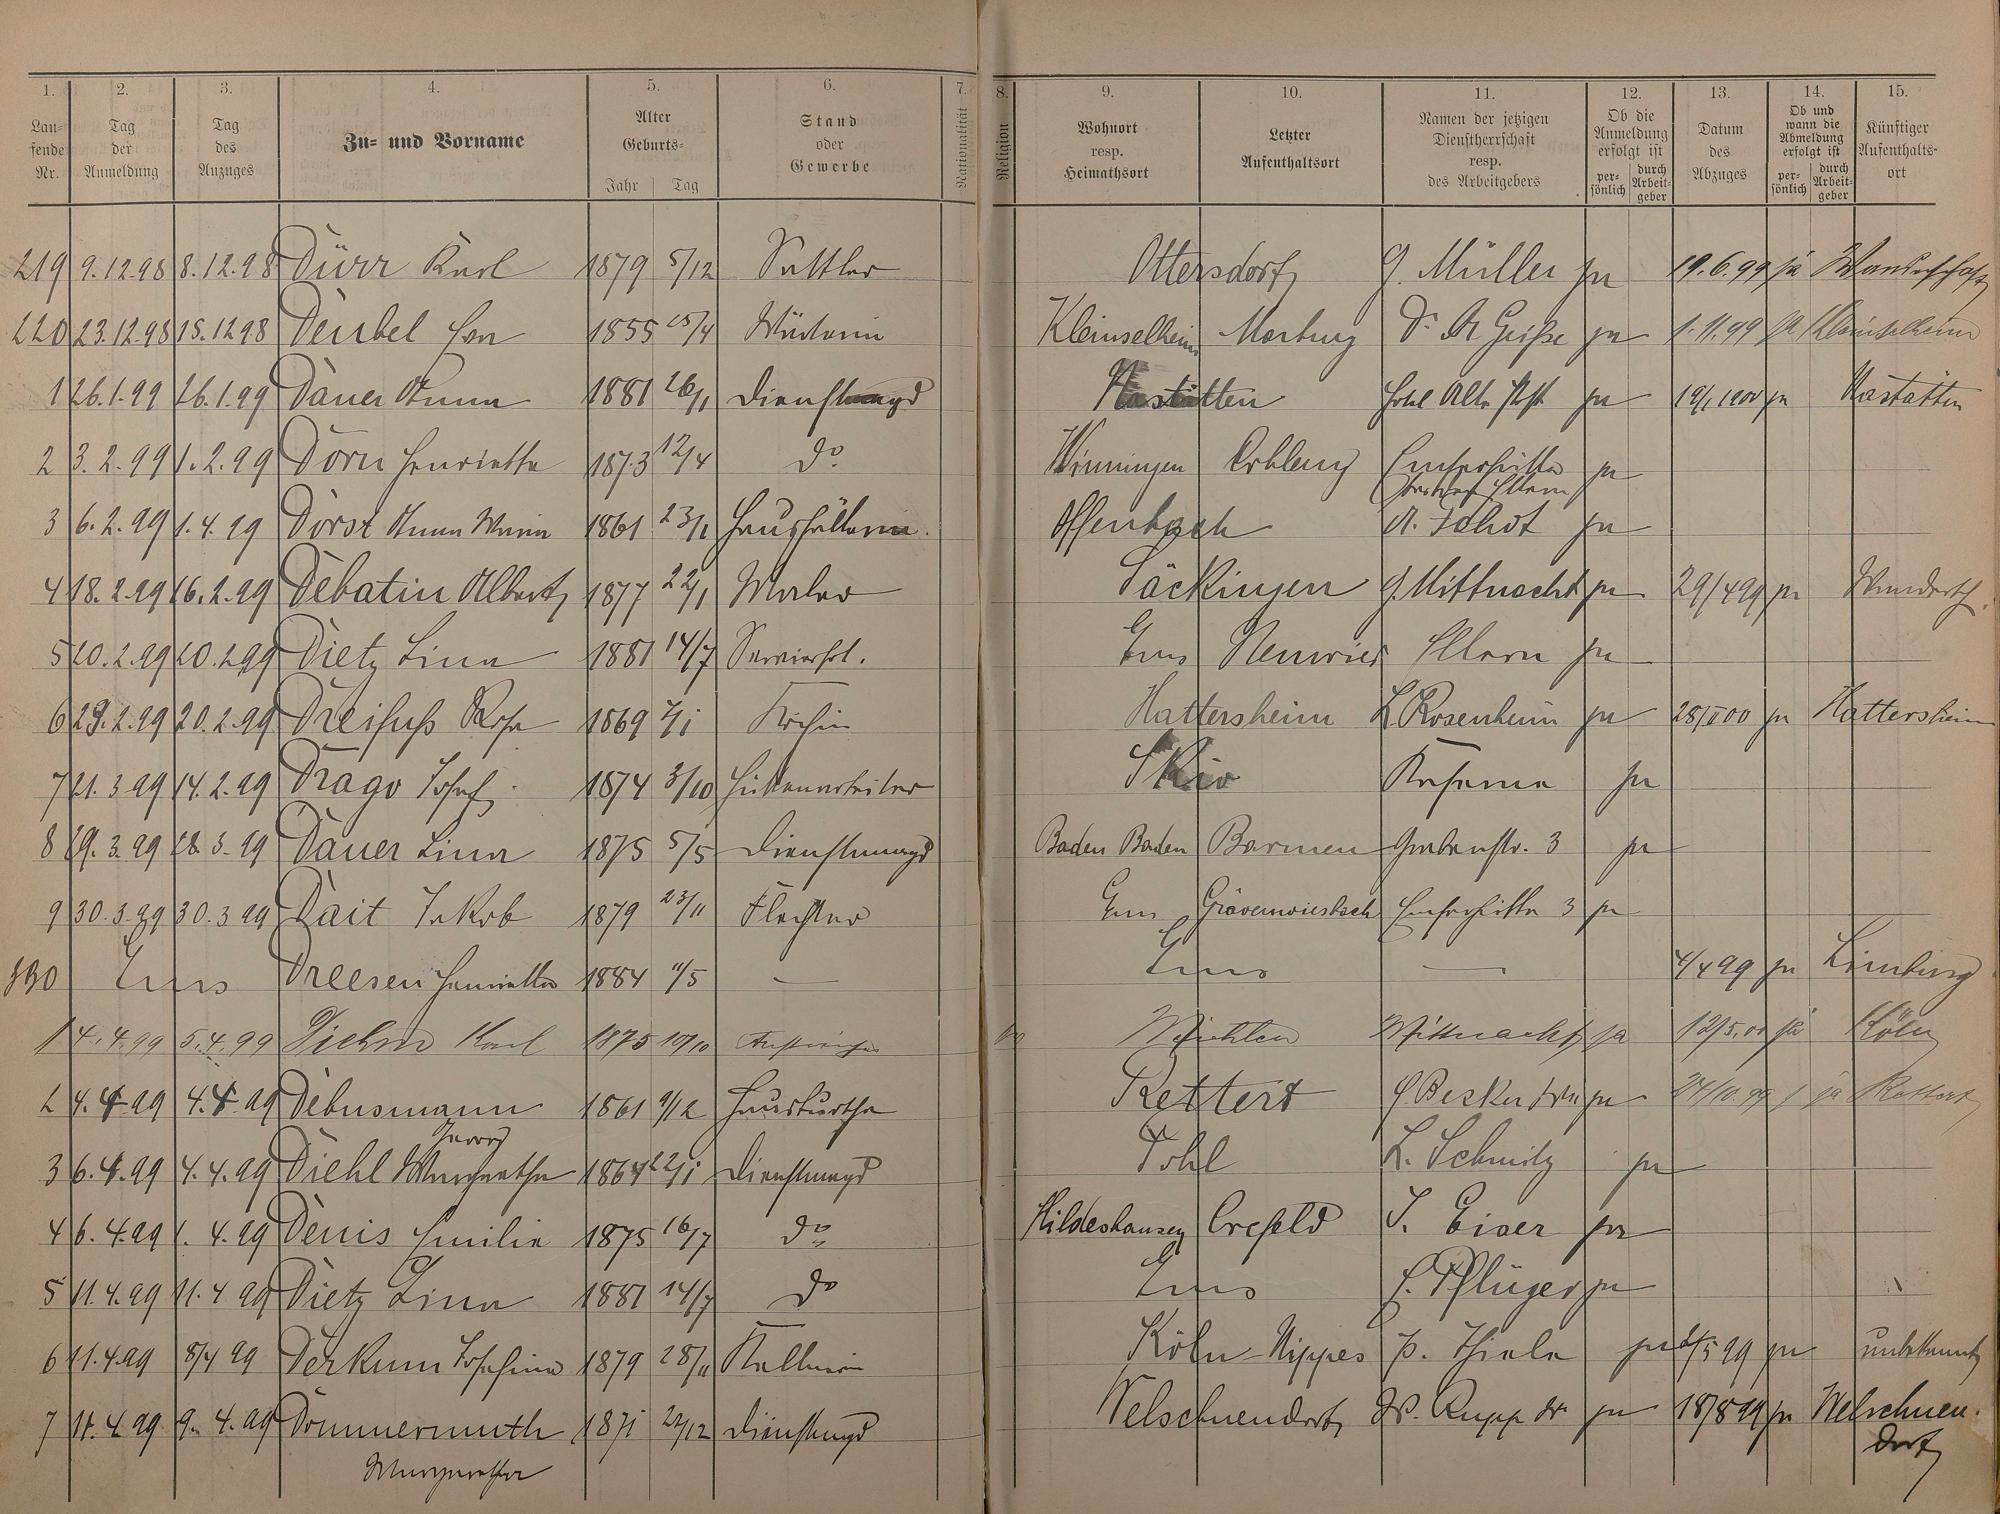 1. 2. 3. 4. 5. 6. 7. 8. 9. 10. 11. 12. 13. 14. 15.
Lau-
fende
Nr.
Tag
der
Anmeldung
Tag
des
Anzuges
Zu- und Vorname
Alter
Geburts-
Jahr Tag
Stand
oder
Gewerbe
Nationalität
Religion
Wohnort
resp.
Heimathsort
Letzter
Aufenthaltsort
Namen der jetzigen
Dienstherrschaft
resp.
des Arbeitgebers
Ob die
Anmeldung
erfolgt ist
per-
sönlich
durch
Arbeit-
geber
Datum
des
Abzuges
Ob und
wann die
Abmeldung
erfolgt ist
per-
sönlich
durch
Arbeit-
geber
Künftiger
Aufenthalts-
ort
219 9.12.98 8.12.98 Dürr Karl 1879 5/12 Sattler Ottersdorf G. Müller ja 19.6.99 ja Wanderschaft
220 23.12.98 15.12.98 Deubel 1855 25/4 Kleinselheim Marburg Dr. A Geiße ja 1.11.99 ja Kleinselheim
1 26.1.99 26.1.99 Dauer Anna 1881 26/1 Dienstmagd Nastätten Hotel Alte Post ja 19/1 1900 ja Nastätten
2 3.2.99 1.2.99 Dorn Henriette 1873 12/4 do Winningen Coblenz Emserhütte ja
3 6.2.99 1.4.99 Dorst Anna Maria 1861 23/1 Haushälterin Offenbach ja
4 18.2.99 16.2.99 Debatin Albert 1877 22/1 Maler Säckingen G. Mittnacht ja 29/4 99 ja
5 20.2.99 20.2.99 Dietz Lina 1881 14/7 Servierfrl. Ems Neuwied ja
6 29.2.99 20.2.99 Dreifuß Rosa 1869 Köchin Hattersheim L. Rosenheim ja 28/II 00 ja Hattersheim
7 21.3 99 14.2.99 Drago Josef 1874 3/10 Hüttenarbeiter Kaserne ja
8 29.3.99 28.3.99 Dauer Lina 1875 5/5 Dienstmagd Baden Baden Barmen Grabenstr. 3 ja
9 30.3.99 30.3 99 Dait Jakob 1879 23/11 Ems Grävenwiesbach Emserhütte 3 ja
330 Ems Dreesen Henriette 1884 11/5 — Ems — 4/4 99 ja Limburg
1 4.4.99 5.4.99 Diehm Karl 1875 10/10 Miehlen Mittnacht ja 12/5.00 ja Köln
2 4.4.99 4.4.99 Debusmann 1861 9/12 Rettert ja 24/10.99 ja Rettert
Georg
3 6.4.99 4.4.99 Diehl Margarethe 1864 22/1 Dienstmagd Pohl L. Schmitz ja
4 6.4.99 1.4.99 Denis Emilie 1875 16/7 do Hildeshausen Crefeld J. Eiser ja
5 11.4.99 11.4 99 Dietz Lina 1881 14/7 do Ems E. Pflüger ja
6 11.4.99 8/4 99 Derkum Josefine 1879 28/11 Kellnerin Köln-Nippes P. Thiele ja ja unbekannt
7 11.4.99 9.4.99 Dommermuth 1871 22/12 Dienstmagd Welschneudorf W. Rupp ja 18/8 99 ja Welschneu-
dorf
Margarethe